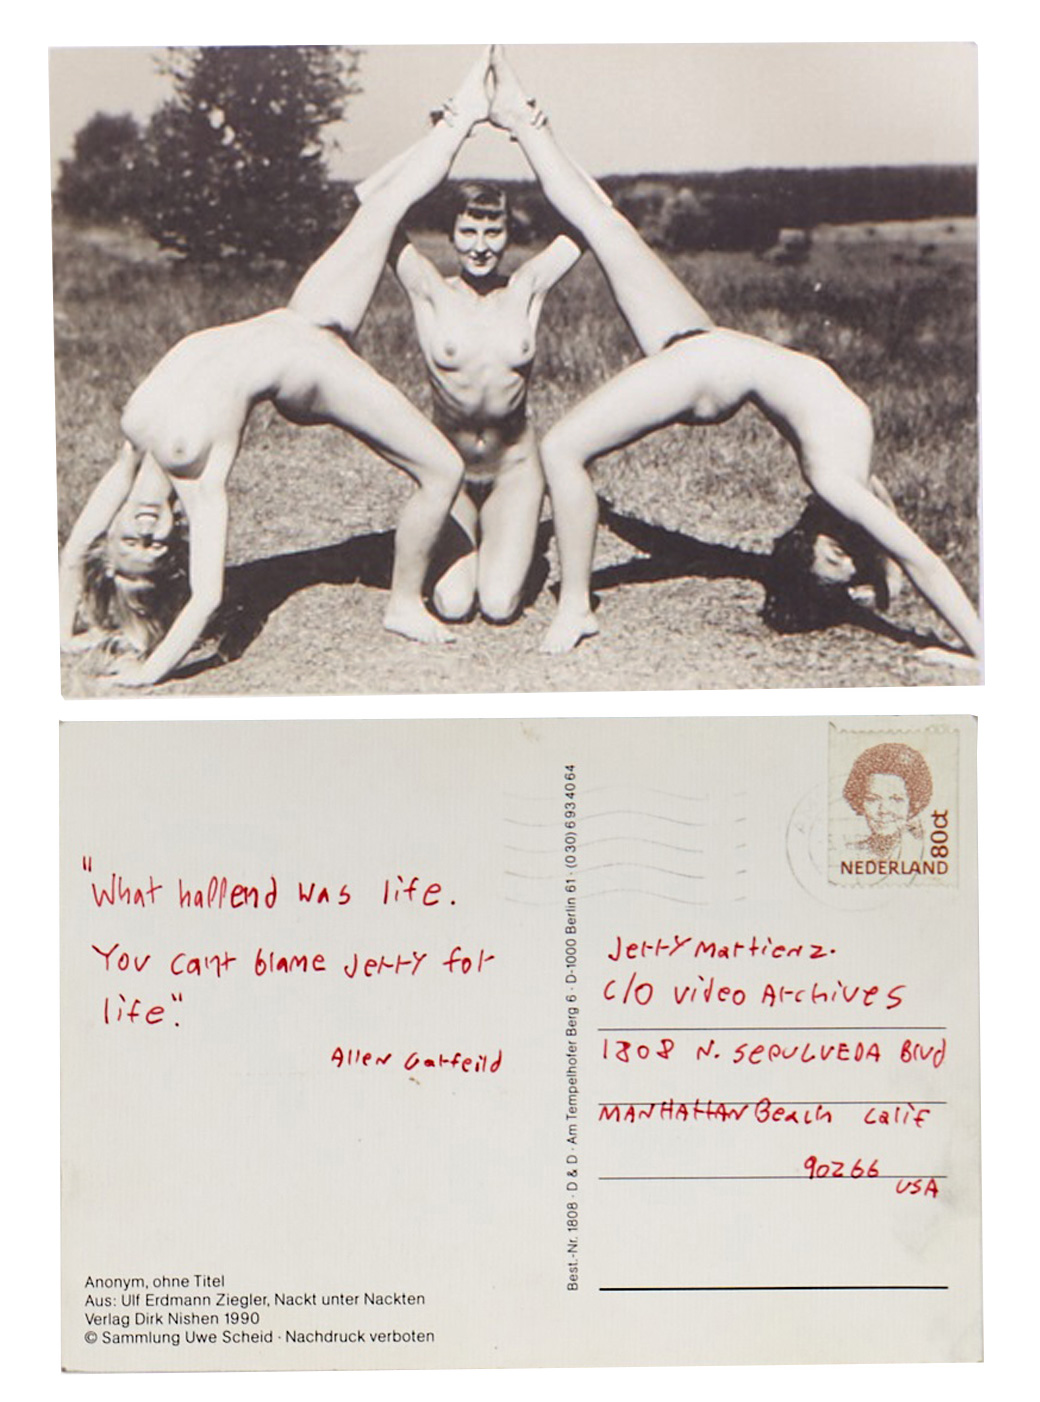 NEDERLAND 80ct
"What happend was life.
You can't blame Jerry for
life".
Allen Garfeild
Jerry Martienz.
C/O Video Archives
1808 N. SEPULVEDA Blvd
MANHATTAN Beach Calif
90266
USA
Best.-Nr. 1808 · D & D · Am Tempelhofer Berg 6 · D-1000 Berlin 61 · (030) 6 93 40 64
Anonym, ohne Titel
Aus: Ulf Erdmann Ziegler, Nackt unter Nackten
Verlag Dirk Nishen 1990
© Sammlung Uwe Scheid · Nachdruck verboten